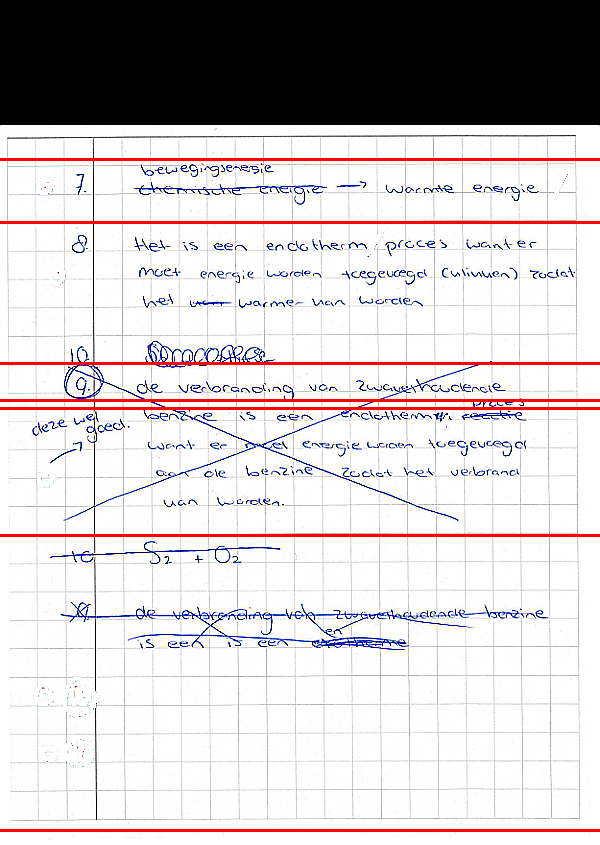 bewegingsenergie
7. chemische energie → warmte energie
8. Het is een endotherm proces want er
moet energie worden toegevoegd (vlinnen) zodat
het warme van worden
10.
9. de verbranding van zwavelhoudende
proces
deze wel goed. → benzine is een endotherm reactie
want er moet energie worden toegevoegd
aan de benzine zodat het verbrand
van worden.
10 S2 + O2
9. de verbranding van zwavelhoudende benzine
en
is een is een exotherme